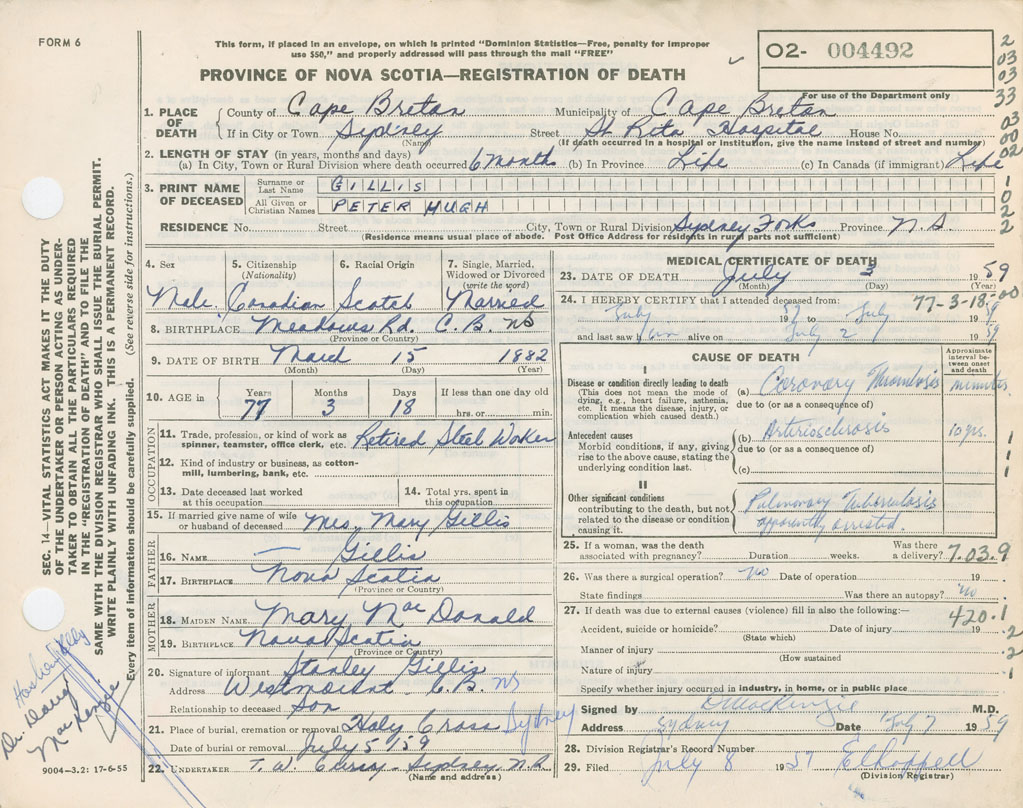 FORM 6
This form, if placed in an envelope, on which is printed "Dominion Statistics—Free, penalty for improper
use $50," and properly addressed will pass through the mail "FREE"
PROVINCE OF NOVA SCOTIA—REGISTRATION OF DEATH
O2- 004492
For use of the Department only
2
03
03
33
03
00
02
1
0
2
2
1. PLACE OF DEATH
County of Cape Breton Municipality of Cape Breton
If in City or Town Sydney Street St Rita Hospital House No.
(Name) (If death occurred in a hospital or institution, give the name instead of street and number)
2. LENGTH OF STAY (in years, months and days)
(a) In City, Town or Rural Division where death occurred 6 months (b) In Province Life (c) In Canada (if immigrant) Life
3. PRINT NAME OF DECEASED
Surname or Last Name GILLIS
All Given or Christian Names PETER HUGH
RESIDENCE No. Street City, Town or Rural Division Sydney Forks Province N.S.
(Residence means usual place of abode. Post Office Address for residents in rural parts not sufficient)
4. Sex 5. Citizenship (Nationality) 6. Racial Origin 7. Single, Married, Widowed or Divorced (write the word)
Male Canadian Scotch Married
8. BIRTHPLACE Meadows Rd. C.B. NS
(Province or Country)
9. DATE OF BIRTH March 15 1882
(Month) (Day) (Year)
10. AGE in Years Months Days If less than one day old
77 3 18 hrs. or min.
OCCUPATION
11. Trade, profession, or kind of work as spinner, teamster, office clerk, etc. Retired Steel Worker
12. Kind of industry or business, as cotton-mill, lumbering, bank, etc.
13. Date deceased last worked at this occupation
14. Total yrs. spent in this occupation
15. If married give name of wife or husband of deceased Mrs. Mary Gillis
FATHER
16. NAME — Gillis
17. BIRTHPLACE Nova Scotia
(Province or Country)
MOTHER
18. MAIDEN NAME Mary MacDonald
19. BIRTHPLACE Nova Scotia
(Province or Country)
20. Signature of informant Stanley Gillis
Address Westmount C.B. NS
Relationship to deceased Son
21. Place of burial, cremation or removal Holy Cross Sydney
Date of burial or removal July 5/59
22. UNDERTAKER T. W. Curry - Sydney N.S.
(Name and address)
MEDICAL CERTIFICATE OF DEATH
23. DATE OF DEATH July 3 1959
(Month) (Day) (Year)
24. I HEREBY CERTIFY that I attended deceased from: 77-3-18-00
July 19 to July 1959
and last saw him alive on July 2 1959
CAUSE OF DEATH
Approximate interval between onset and death
I
Disease or condition directly leading to death
(This does not mean the mode of dying, e.g., heart failure, asthenia, etc. It means the disease, injury, or complication which caused death.)
(a) Coronary Thrombosis minutes
due to (or as a consequence of)
Antecedent causes
Morbid conditions, if any, giving rise to the above cause, stating the underlying condition last.
(b) Arteriosclerosis 10 yrs.
due to (or as a consequence of)
(c)
1
1
1
II
Other significant conditions
contributing to the death, but not related to the disease or condition causing it.
Pulmonary Tuberculosis
apparently arrested.
25. If a woman, was the death associated with pregnancy? Duration weeks. Was there a delivery? 7.03.9
26. Was there a surgical operation? no Date of operation 19
State findings Was there an autopsy? no
27. If death was due to external causes (violence) fill in also the following:— 420.1
Accident, suicide or homicide? Date of injury 19 .2
(State which)
Manner of injury .2
(How sustained
Nature of injury 1
Specify whether injury occurred in industry, in home, or in public place
Signed by D MacKenzie M.D.
Address Sydney Date July 7 1959
28. Division Registrar's Record Number
29. Filed July 8 19
(Division Registrar)
SEC. 14—VITAL STATISTICS ACT MAKES IT THE DUTY
OF THE UNDERTAKER OR PERSON ACTING AS UNDER-
TAKER TO OBTAIN ALL THE PARTICULARS REQUIRED
IN THE "REGISTRATION OF DEATH" AND TO FILE THE
SAME WITH THE DIVISION REGISTRAR WHO SHALL ISSUE THE BURIAL PERMIT.
WRITE PLAINLY WITH UNFADING INK. THIS IS A PERMANENT RECORD.
Every item of information should be carefully supplied. (See reverse side for instructions.)
Dr. Doug
MacKenzie
9004—3.2: 17-6-55